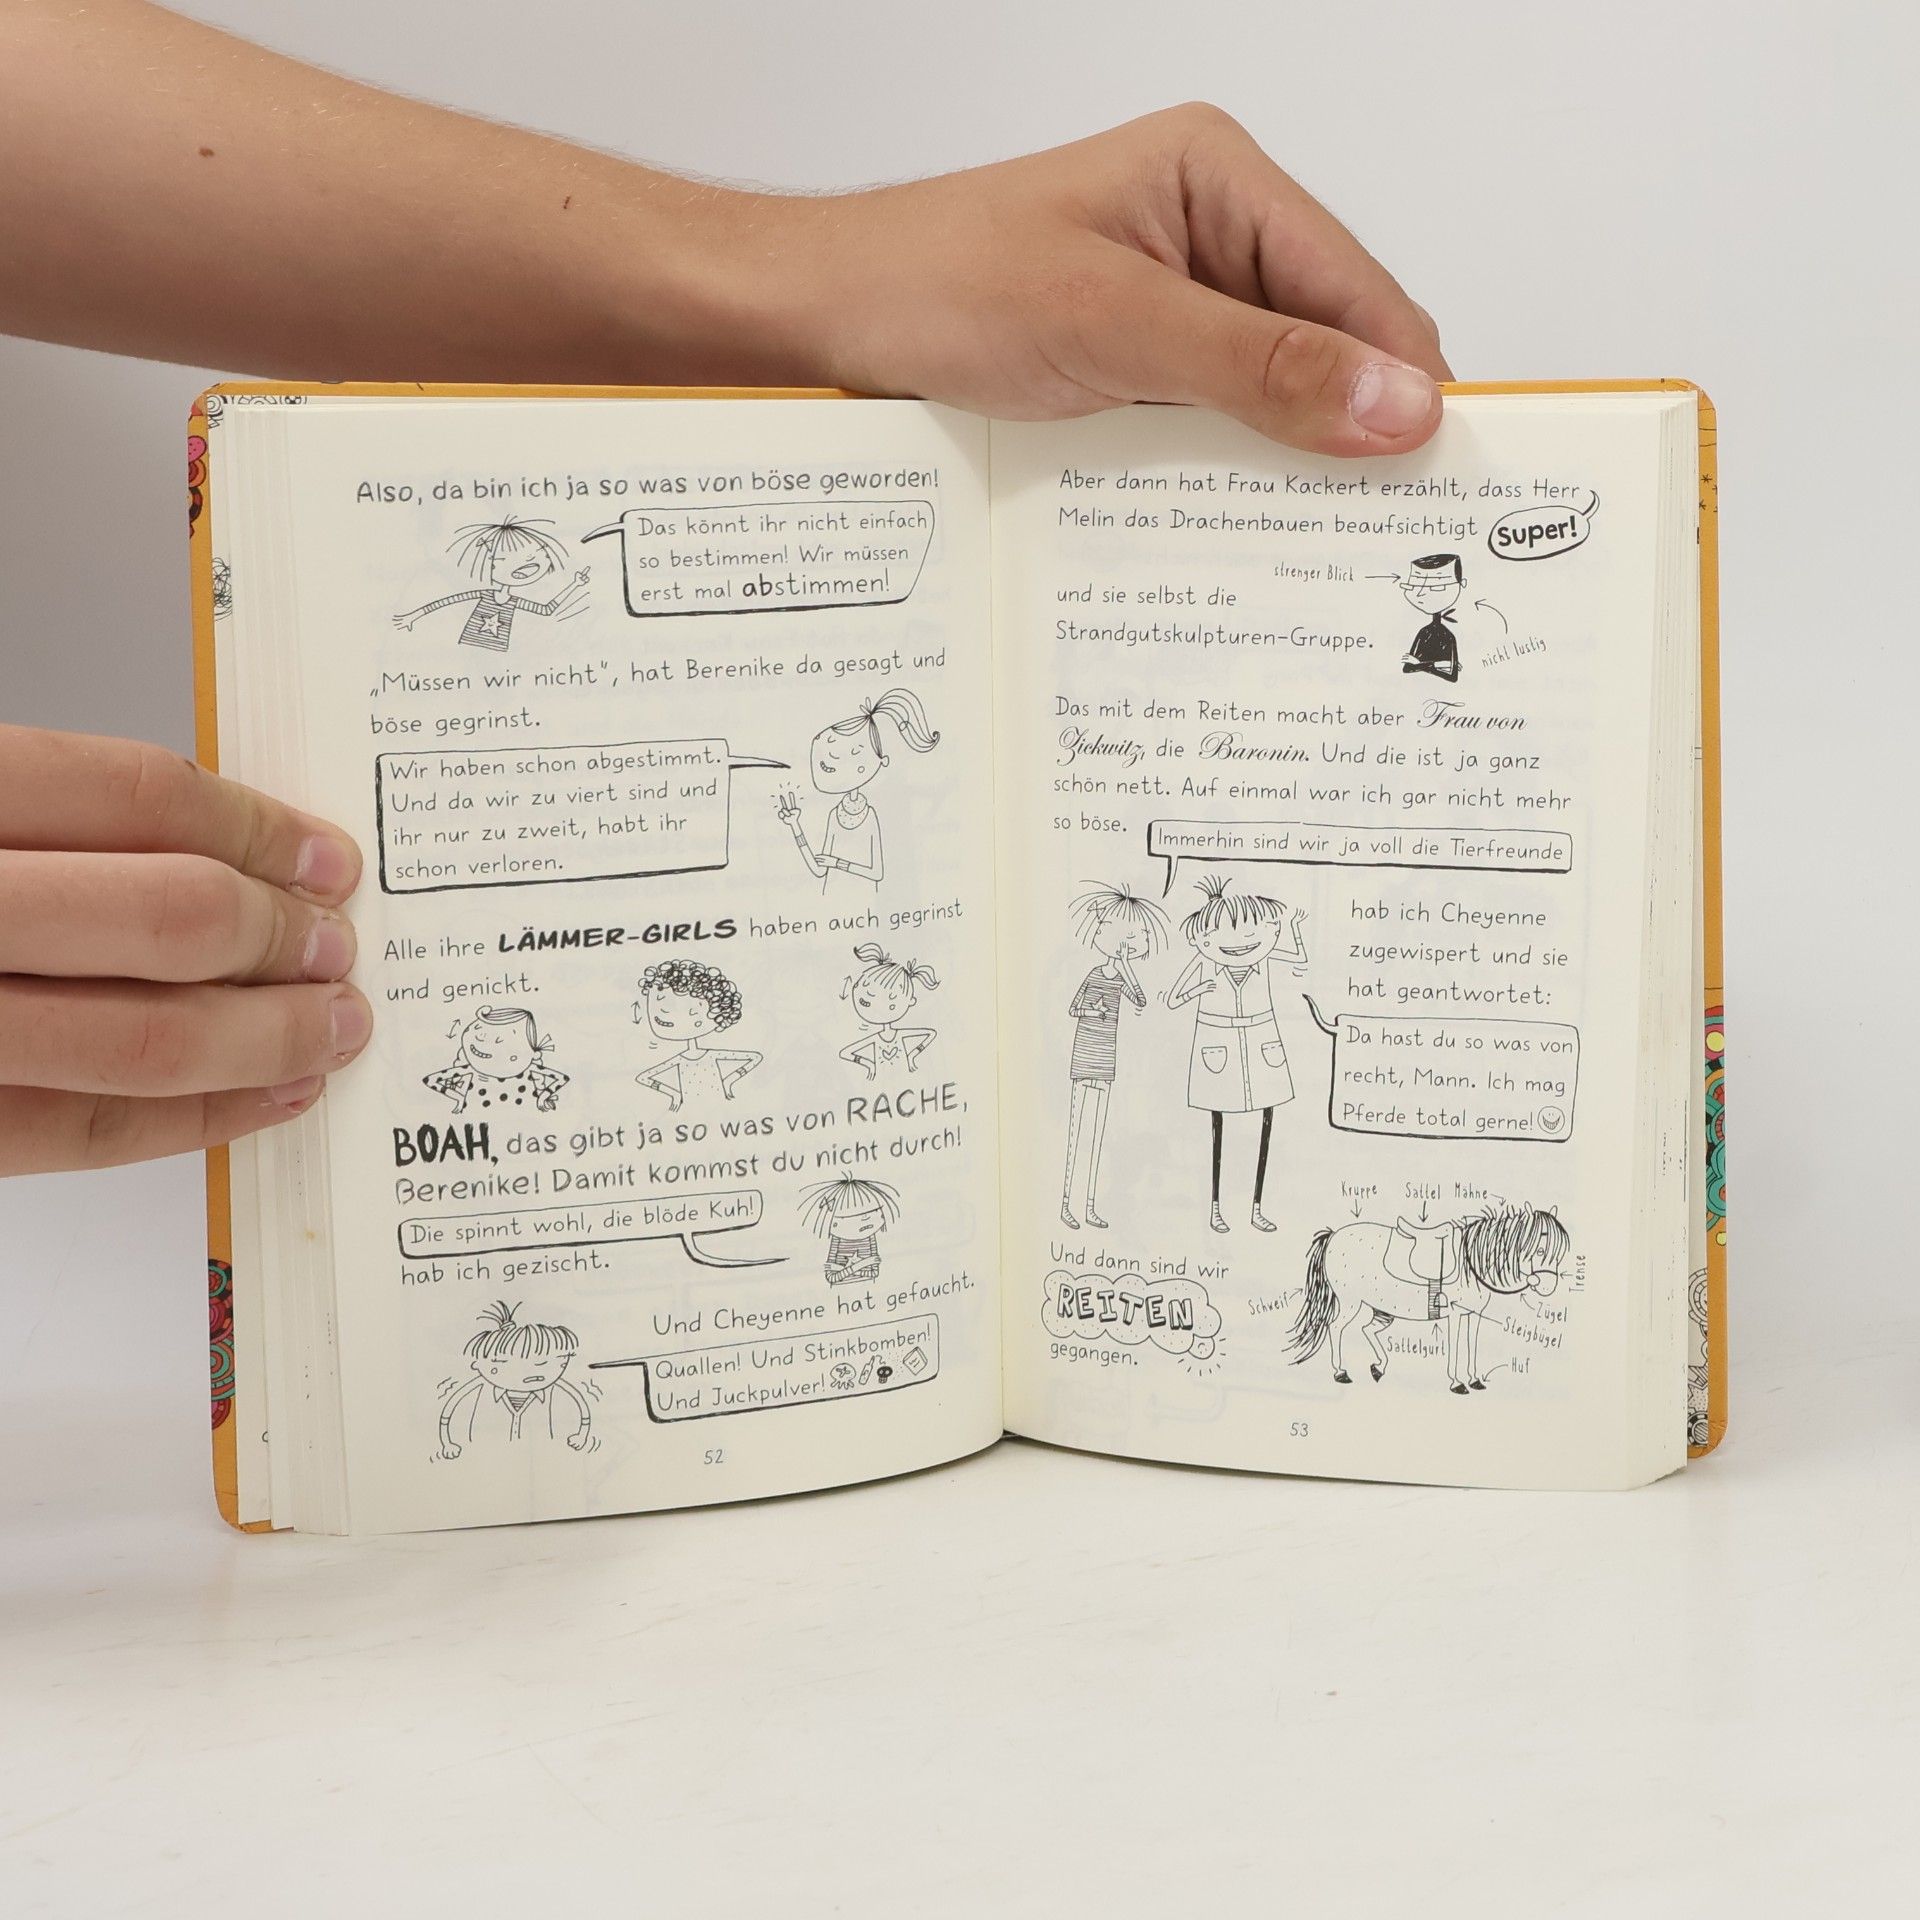 Also, da bin ich ja so was von böse geworden!
Das könnt ihr nicht einfach
so bestimmen! Wir müssen
erst mal abstimmen!
„Müssen wir nicht", hat Berenike da gesagt und
böse gegrinst.
Wir haben schon abgestimmt.
Und da wir zu viert sind und
ihr nur zu zweit, habt ihr
schon verloren.
Alle ihre LÄMMER-GIRLS haben auch gegrinst
und genickt.
BOAH, das gibt ja so was von RACHE,
Berenike! Damit kommst du nicht durch!
Die spinnt wohl, die blöde Kuh!
hab ich gezischt.
Und Cheyenne hat gefaucht.
Quallen! Und Stinkbomben!
Und Juckpulver!
52
Aber dann hat Frau Kackert erzählt, dass Herr
Melin das Drachenbauen beaufsichtigt
Super!
strenger Blick
und sie selbst die
Strandgutskulpturen-Gruppe.
nicht lustig
Das mit dem Reiten macht aber Frau von
Zickwitz, die Baronin. Und die ist ja ganz
schön nett. Auf einmal war ich gar nicht mehr
so böse.
Immerhin sind wir ja voll die Tierfreunde
hab ich Cheyenne
zugewispert und sie
hat geantwortet:
Da hast du so was von
recht, Mann. Ich mag
Pferde total gerne!
Kruppe Sattel Mähne
Und dann sind wir
REITEN
gegangen.
Trense
Schweif
Zügel
Steigbügel
Sattelgurt
Huf
53